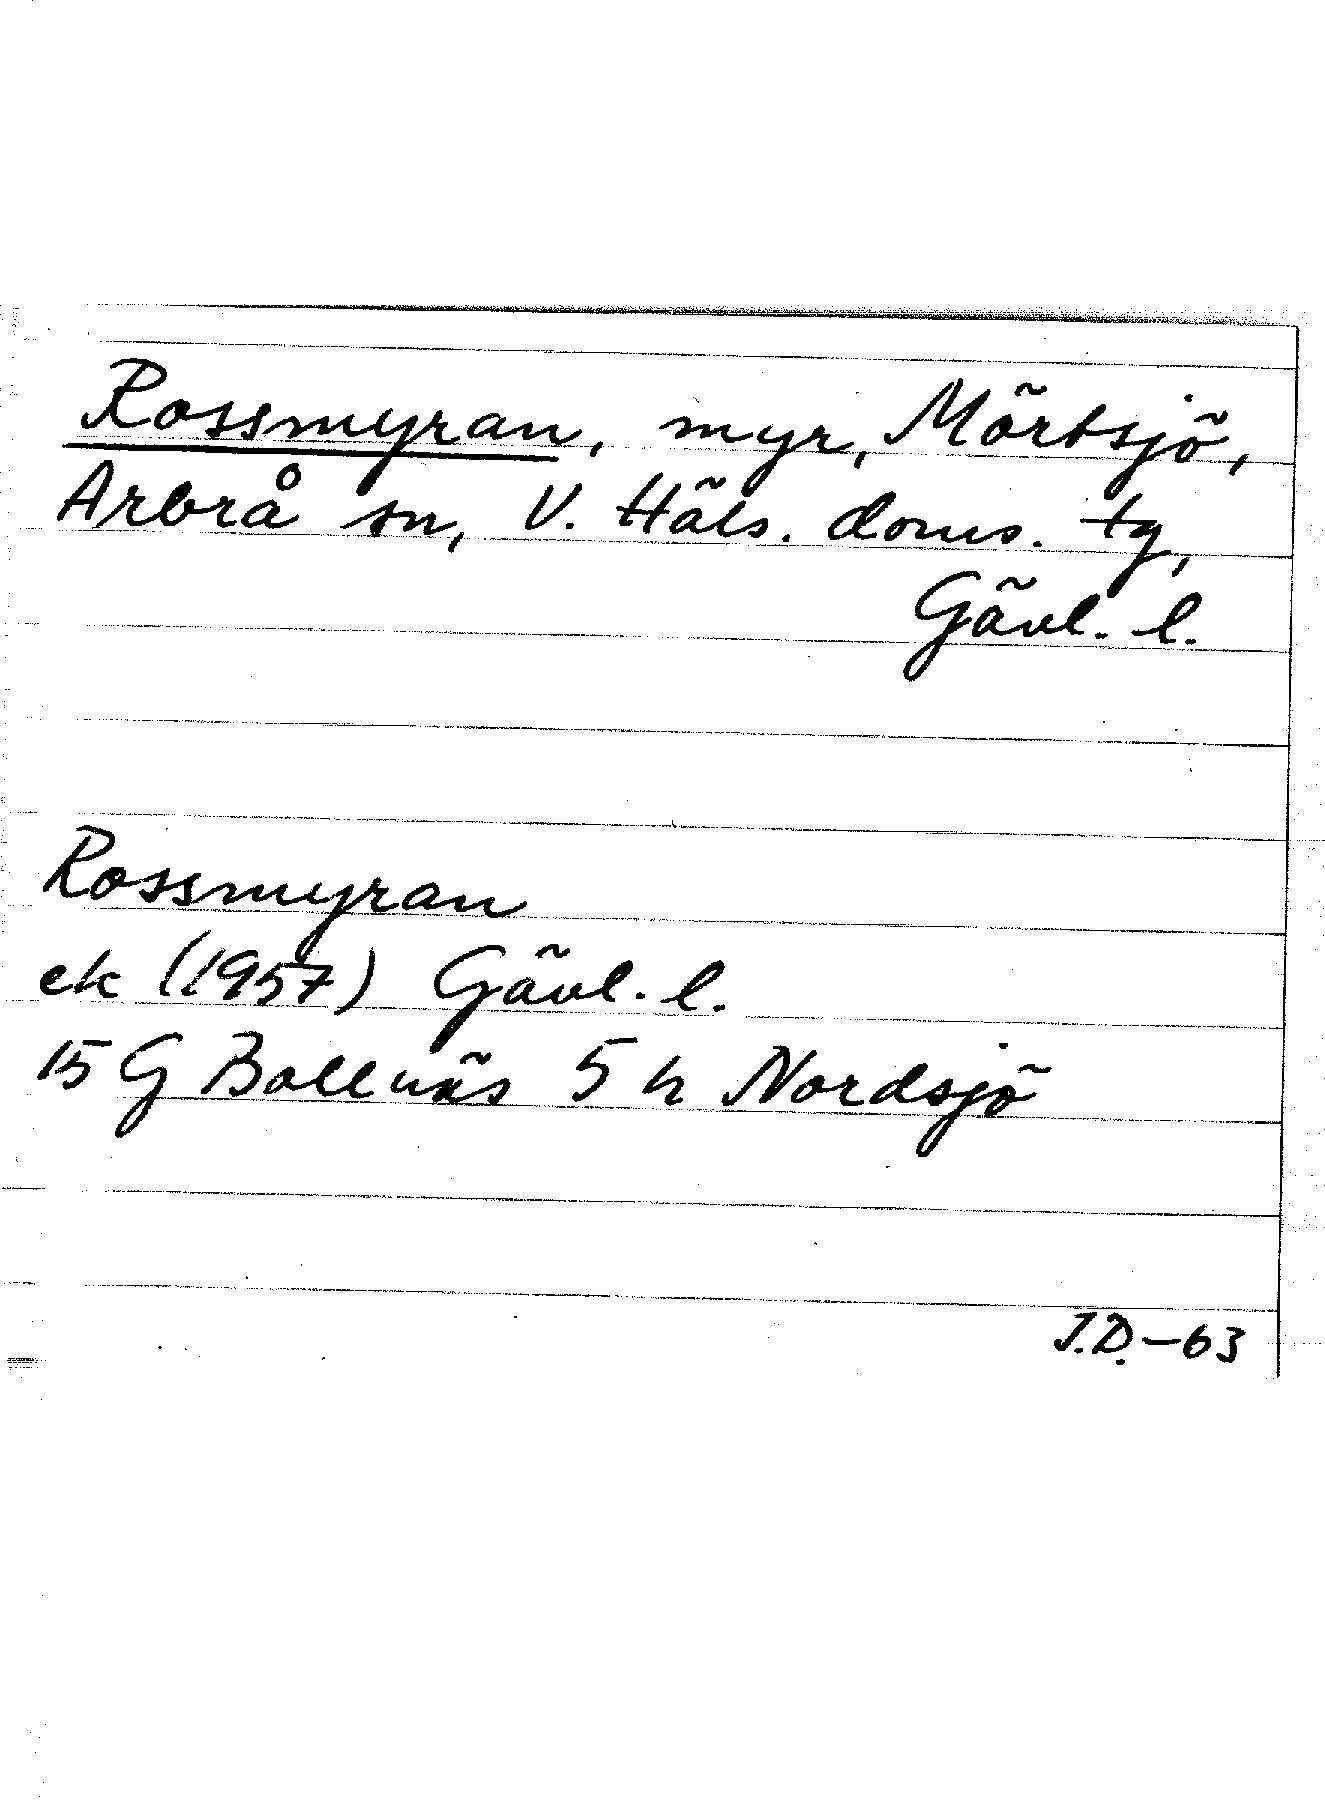 Rossmyran, myr, Mörtsjö,
Arbrå sn, V. Häls. doms. tg,
Gävl. l.
Rossmyran
ek (1957) Gävl. l.
15 G Bollnäs 5 h Nordsjö
J.D.-63